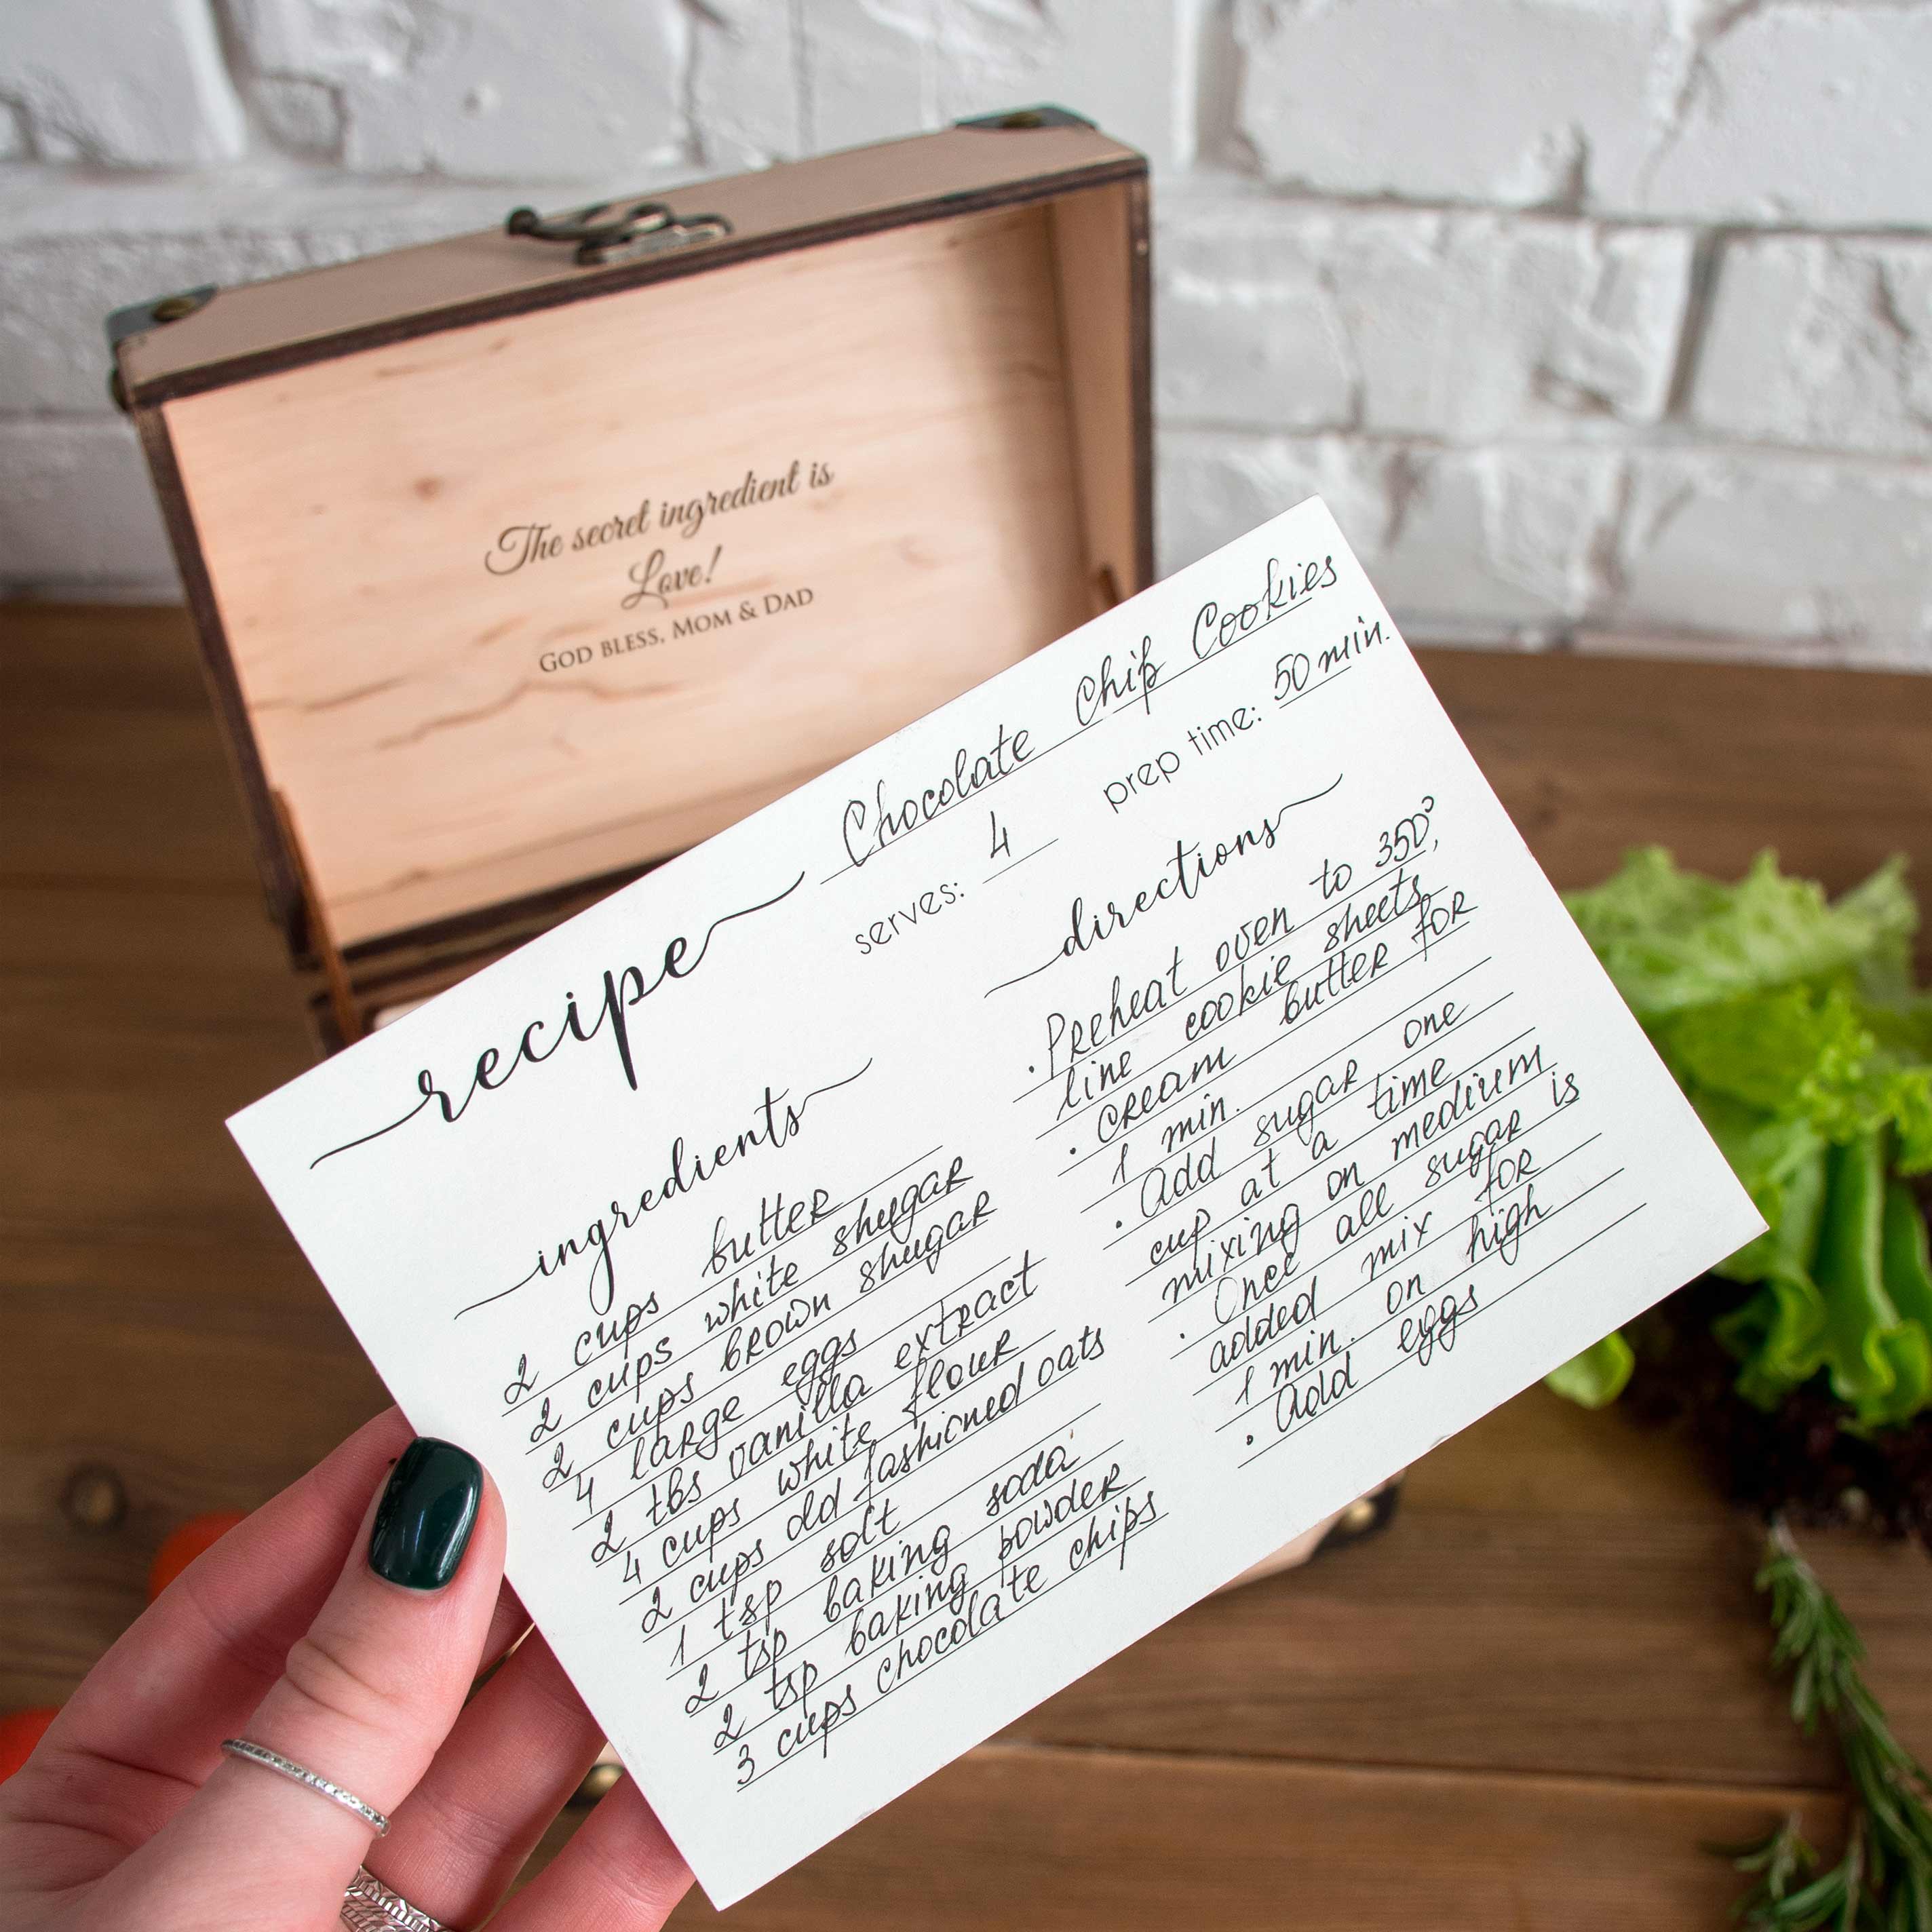 The secret ingredient is
Love!
GOD BLESS, MOM & DAD
recipe Chocolate Chip Cookies
serves: 4 prep time: 50 min.
ingredients
2 cups butter
2 cups white shugar
2 cups brown shugar
4 large eggs
2 tbs vanilla extract
4 cups white flour
2 cups old fashioned oats
1 tsp solt
2 tsp baking soda
2 tsp baking powder
3 cups chocolate chips
directions
· Preheat oven to 350°,
line cookie sheets
· cream butter for
1 min.
· Add sugar one
cup at a time
mixing on medium
· Once all sugar is
added mix for
1 min. on high
· Add eggs